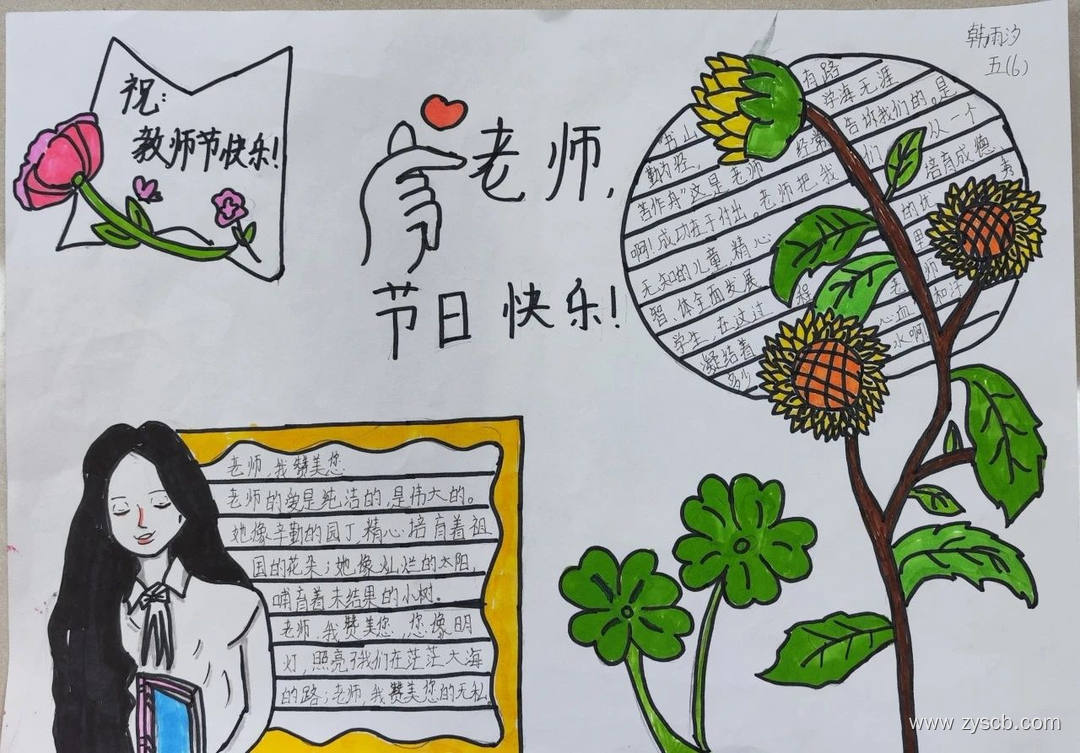 韩雨汐
五(6)
祝:
教师节快乐!
老师,
节日快乐!
书山
有路
勤为径,
学海无涯
苦作舟"这是老师
经常
告诉我们的。是
啊!成功在于付出。老师把我
们
从一个
无知的儿童,精心
培育成德、
智、体全面发展
的优
秀
学生,在这过
程
里
凝结着
老师
多少
心血
和汗
水啊!
老师,我赞美您
老师的爱是纯洁的,是伟大的。
她像辛勤的园丁,精心培育着祖
国的花朵;她像灿烂的太阳,
哺育着未结果的小树。
老师,我赞美您,您像明
灯,照亮了我们在茫茫大海
的路;老师,我赞美您的无私
www.zyscb.com